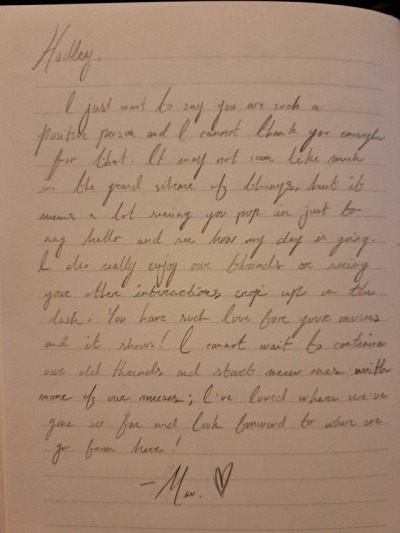 Hadley,
I just want to say you are such a
positive person and I cannot thank you enough
for that. It may not seem like much
in the grand silence of things, but it
means a lot seeing you pop in just to
say hello and see how my day is going.
I also really enjoy our threads or seeing
your other interactions crop up on the
dash. You have such love for your muses
and it shows! I cannot wait to continue
our old threads and start new ones with
more of our muses; I've loved where we've
gone so far and look forward to where we
go from here!
- Mar. ♡